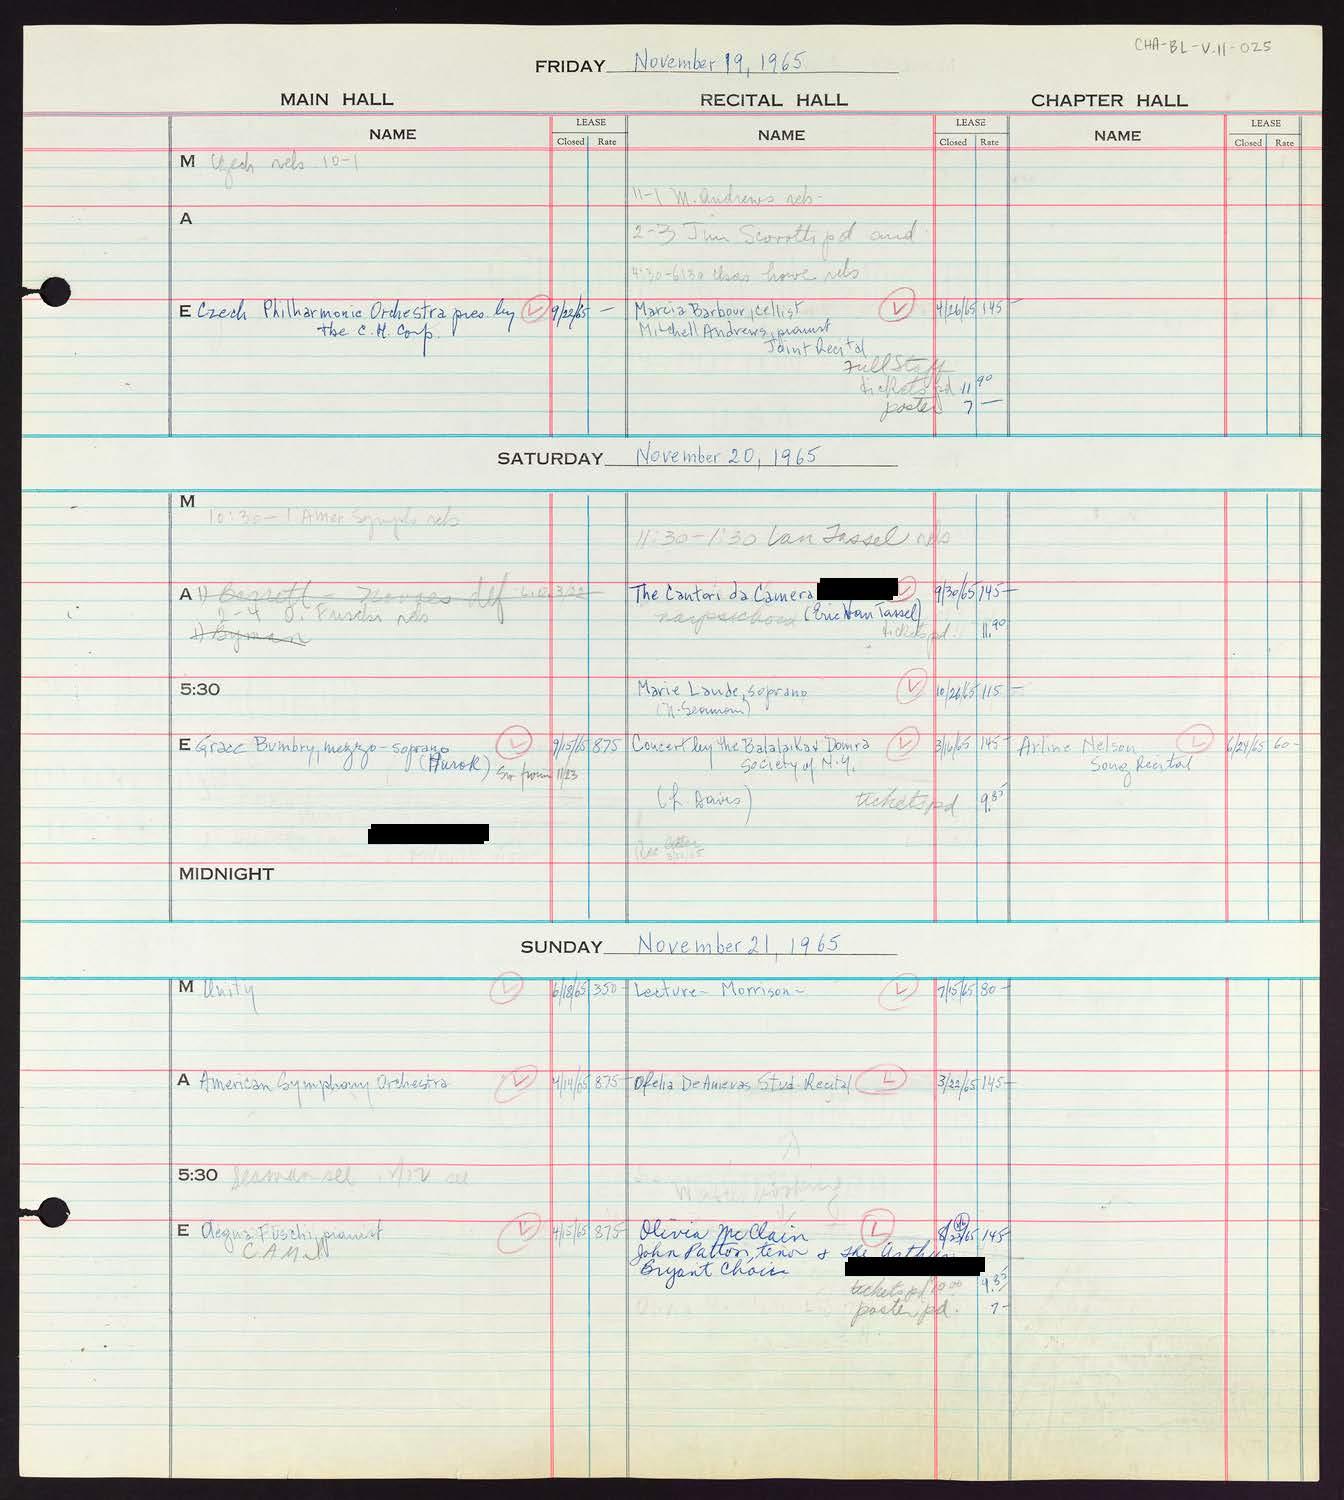 CHA-BL-V.11-025
FRIDAY November 19, 1965
MAIN HALL RECITAL HALL CHAPTER HALL
NAME LEASE Closed Rate NAME LEASE Closed Rate NAME LEASE Closed Rate
M Czech rehs 10-1
11-1 M. Andrews rehs-
A
2-3 Jim pd and
4:30-6:30 howe rehs
E Czech Philharmonic Orchestra pres. by 9/22/65 —
the C.H. Corp.
Marcia Barbour, cellist 4/26/65 145-
Mitchell Andrews, pianist
Joint Recital
Full Staff
tickets pd 11 90
poster 7 —
SATURDAY November 20, 1965
M
10:30-1 Amer Symph rehs
11:30-1:30 Van Tassel rehs
A 1) Barrett -
2-4 O. Fuschi rehs
1) Byman
The Cantori da Camera 9/30/65 145-
harpsichord (Eric Van Tassel)
tickets pd. 11.90
5:30
Marie Laude, soprano 10/26/65 115 -
E Grace Bumbry, mezzo-soprano 9/15/65 875
(Hurok) Sw from 11/23
Concert by the Balalaika & Domra 3/16/65 145-
Society of N.Y.
(L. Davis) tickets pd 9.85
Arline Nelson 6/24/65 60-
Song Recital
MIDNIGHT
SUNDAY November 21, 1965
M Unity 6/18/65 350- Lecture- Morrison- 7/15/65 80-
A American Symphony Orchestra 4/14/65 875- Ofelia DeAnievas Stud. Recital 3/22/65 145-
5:30
E Olegna Fuschi, pianist 4/15/65 875-
C.A.M.I.
Olivia McClain 145-
John Patton, tenor & the Arthur
Bryant Choir
tickets pd 10.00 9.85
poster pd. 7-